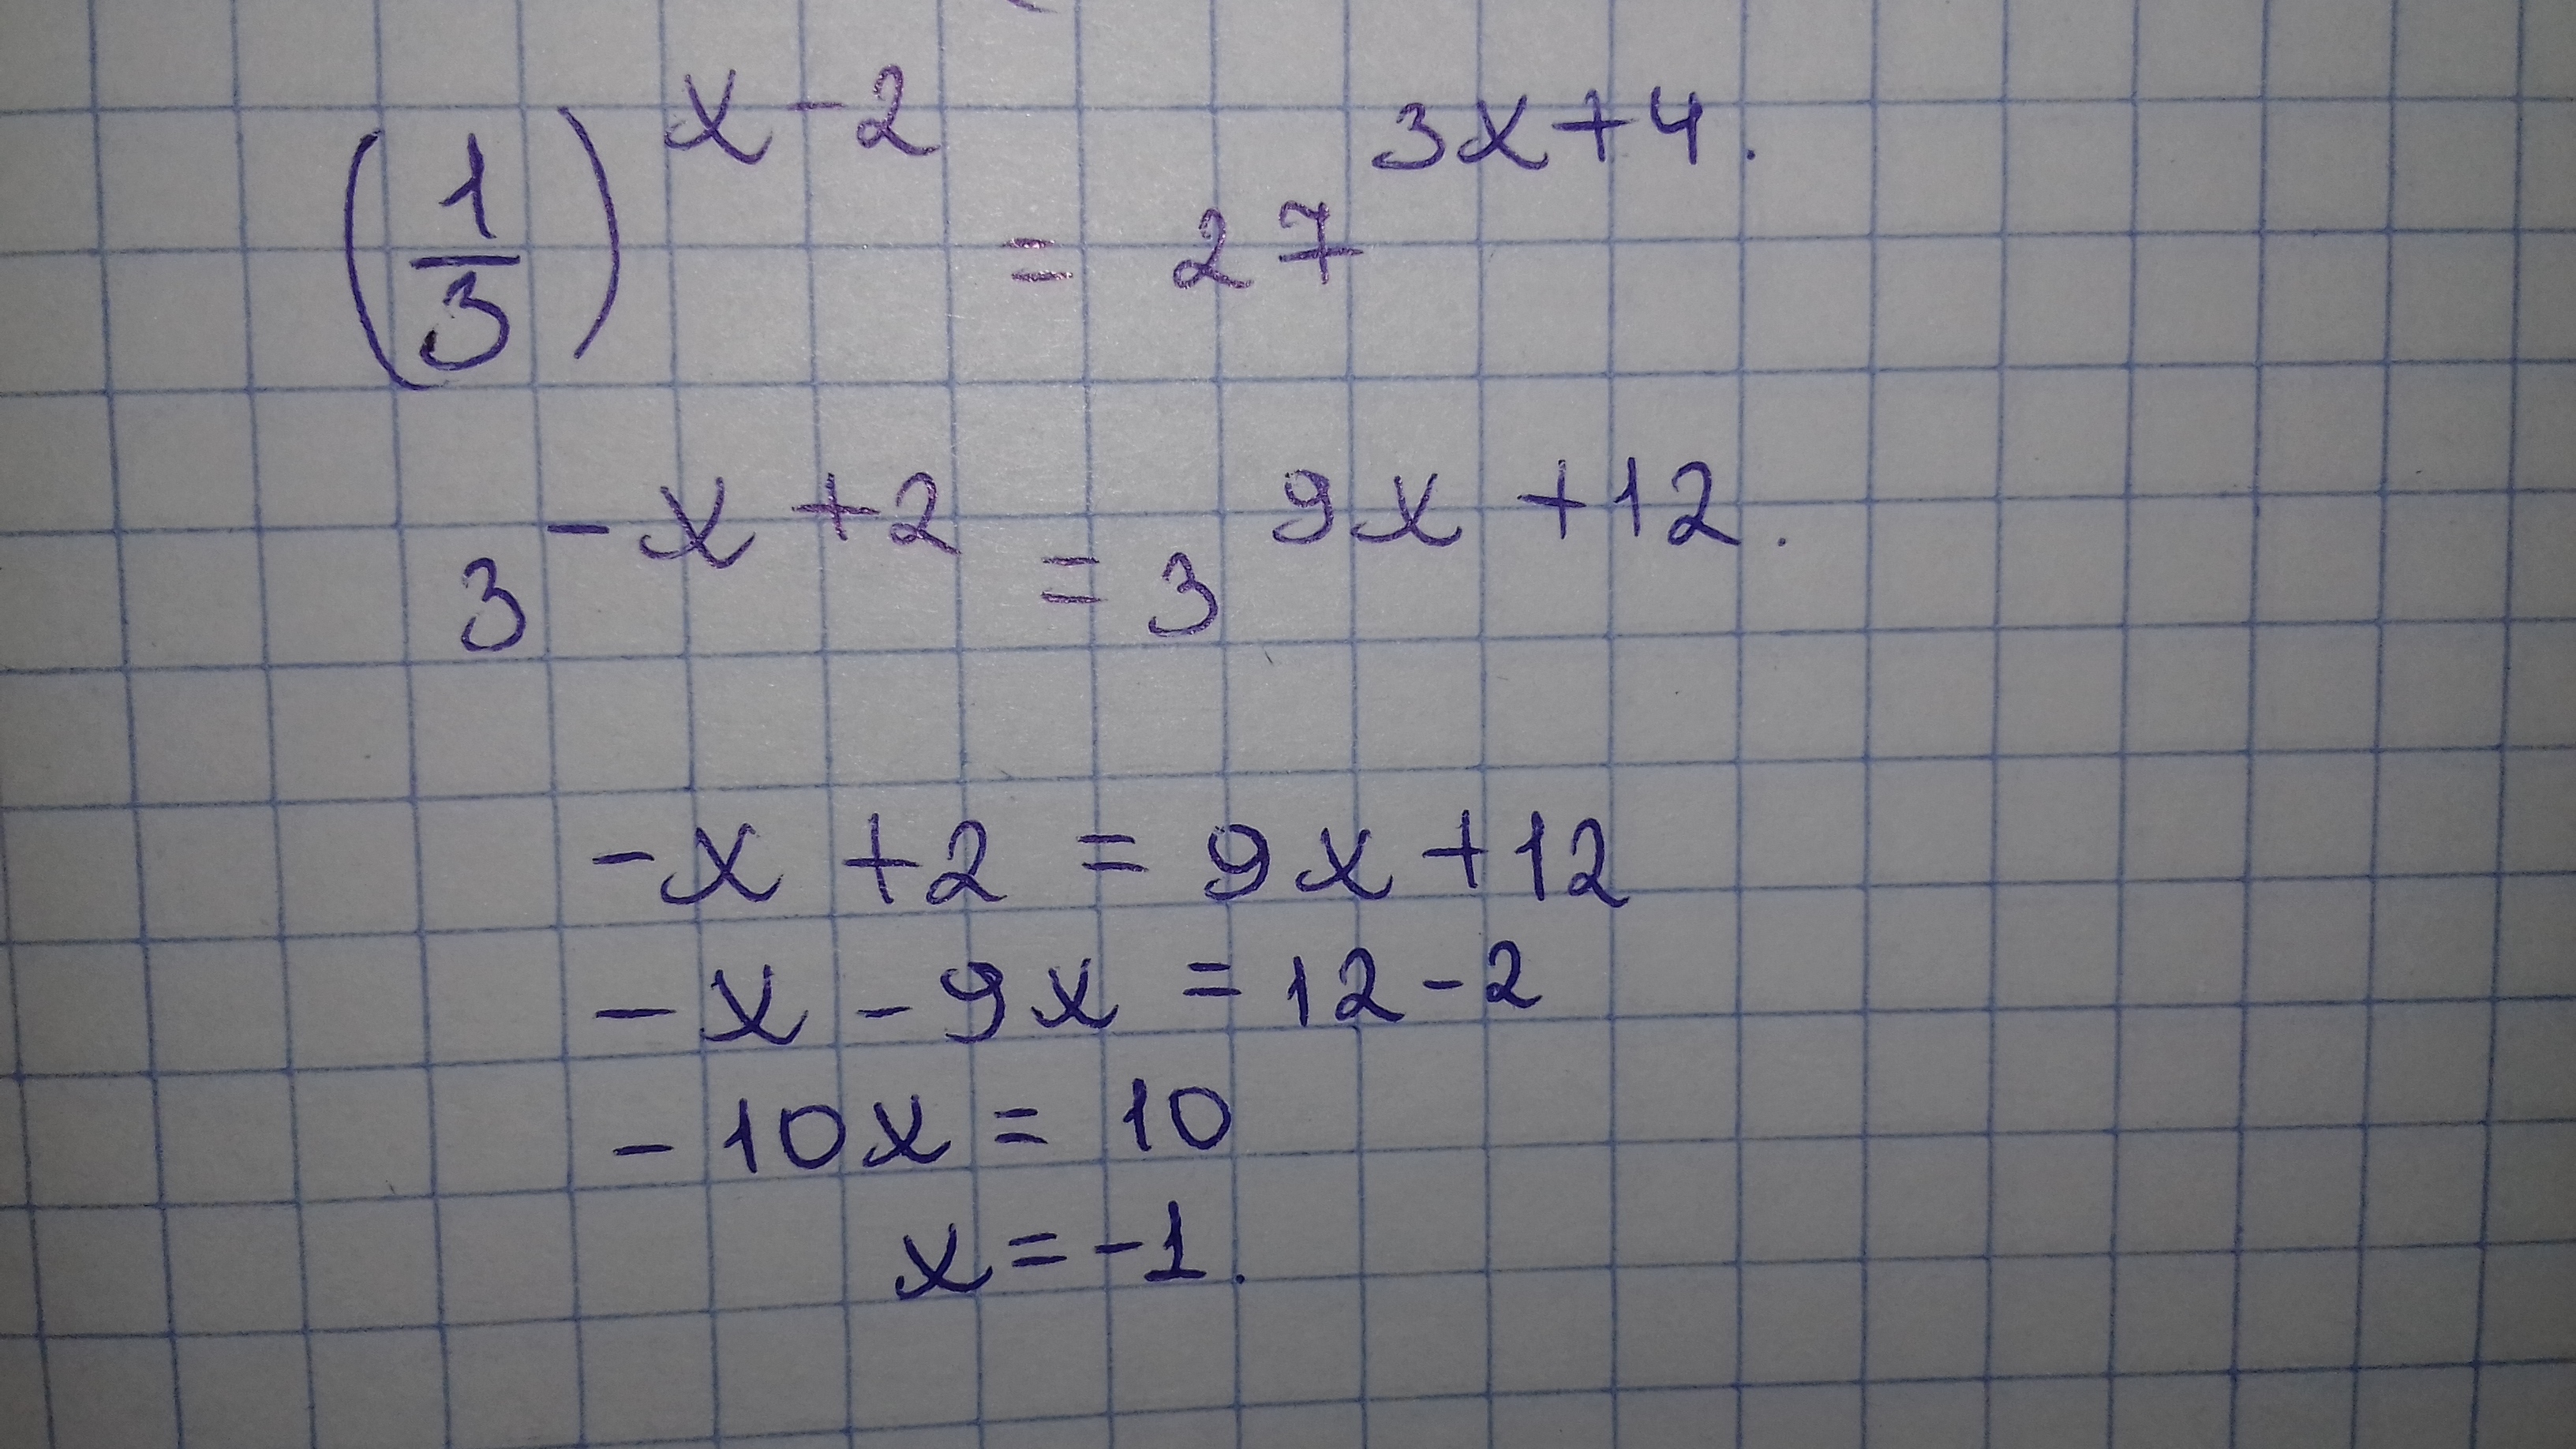 (1/3)^(x-2) = 27^(3x+4).
3^(-x+2) = 3^(9x+12).
-x+2 = 9x+12
-x-9x = 12-2
-10x = 10
x = -1.